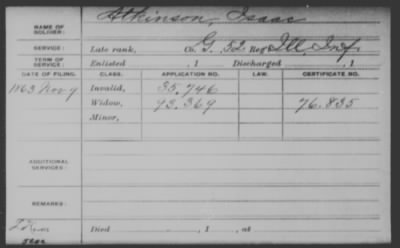 NAME OF SOLDIER: Atkinson, Isaac
SERVICE: Late rank, Co. G, 52 Reg't Ill. Inf.
TERM OF SERVICE: Enlisted , 1 Discharged , 1
DATE OF FILING. CLASS. APPLICATION NO. LAW. CERTIFICATE NO.
1863 Nov 9 Invalid, 35.746
Widow, 93.369 76.835
Minor,
ADDITIONAL SERVICES:
REMARKS:
Died , 1 , at